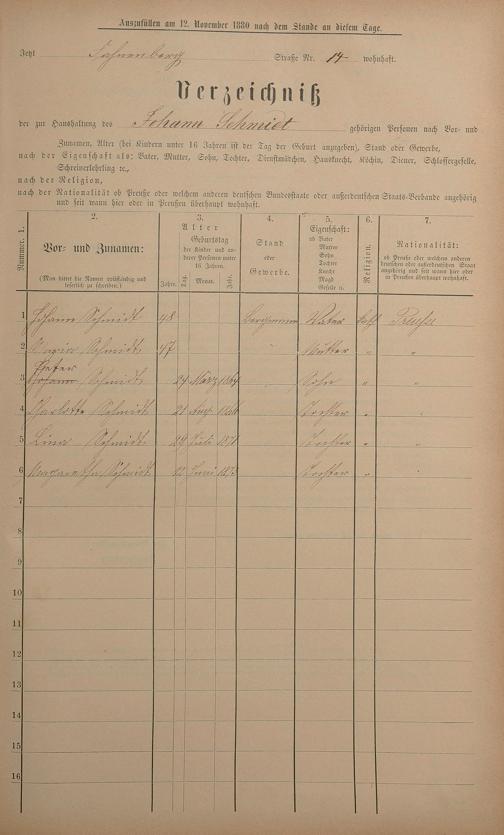 Auszufüllen am 12. November 1880 nach dem Stande an diesem Tage.
Jetzt Fahrenberg Straße Nr. 14 wohnhaft.
Verzeichniß
der zur Haushaltung des Johann Schmidt gehörigen Personen nach Vor- und
Zunamen, Alter (bei Kindern unter 16 Jahren ist der Tag der Geburt anzugeben), Stand oder Gewerbe,
nach der Eigenschaft als: Vater, Mutter, Sohn, Tochter, Dienstmädchen, Hausknecht, Köchin, Diener, Schlossergeselle,
Schreinerlehrling ꝛc.,
nach der Religion,
nach der Nationalität ob Preuße oder welchem anderen deutschen Bundesstaate oder außerdeutschen Staats-Verbande angehörig
und seit wann hier oder in Preußen überhaupt wohnhaft.
Nummer. 1.
2.
Vor- und Zunamen:
(Man bittet die Namen vollständig und
leserlich zu schreiben.)
3.
Alter
Geburtstag
der Kinder und an-
derer Personen unter
16 Jahren.
Jahre. Tag. Monat. Jahr.
4.
Stand
oder
Gewerbe.
5.
Eigenschaft:
ob Vater
Mutter
Sohn
Tochter
Knecht
Magd
Geselle u.
6.
Religion.
7.
Nationalität:
ob Preuße oder welchem anderen
deutschen oder außerdeutschen Staat
angehörig und seit wann hier oder in
Preußen überhaupt wohnhaft.
1 Johann Schmidt 48 Bergmann Vater kath Preuße
2 Maria Schmidt 47 " Mutter " "
Peter
3 Johann Schmidt 24 März 1864 " Sohn " "
4 Charlotte Schmidt 21 Aug 1866 Tochter " "
5 Lina Schmidt 29 Juli 1871 Tochter " "
6 Margaretha Schmidt 12 Juni 1873 Tochter " "
7
8
9
10
11
12
13
14
15
16